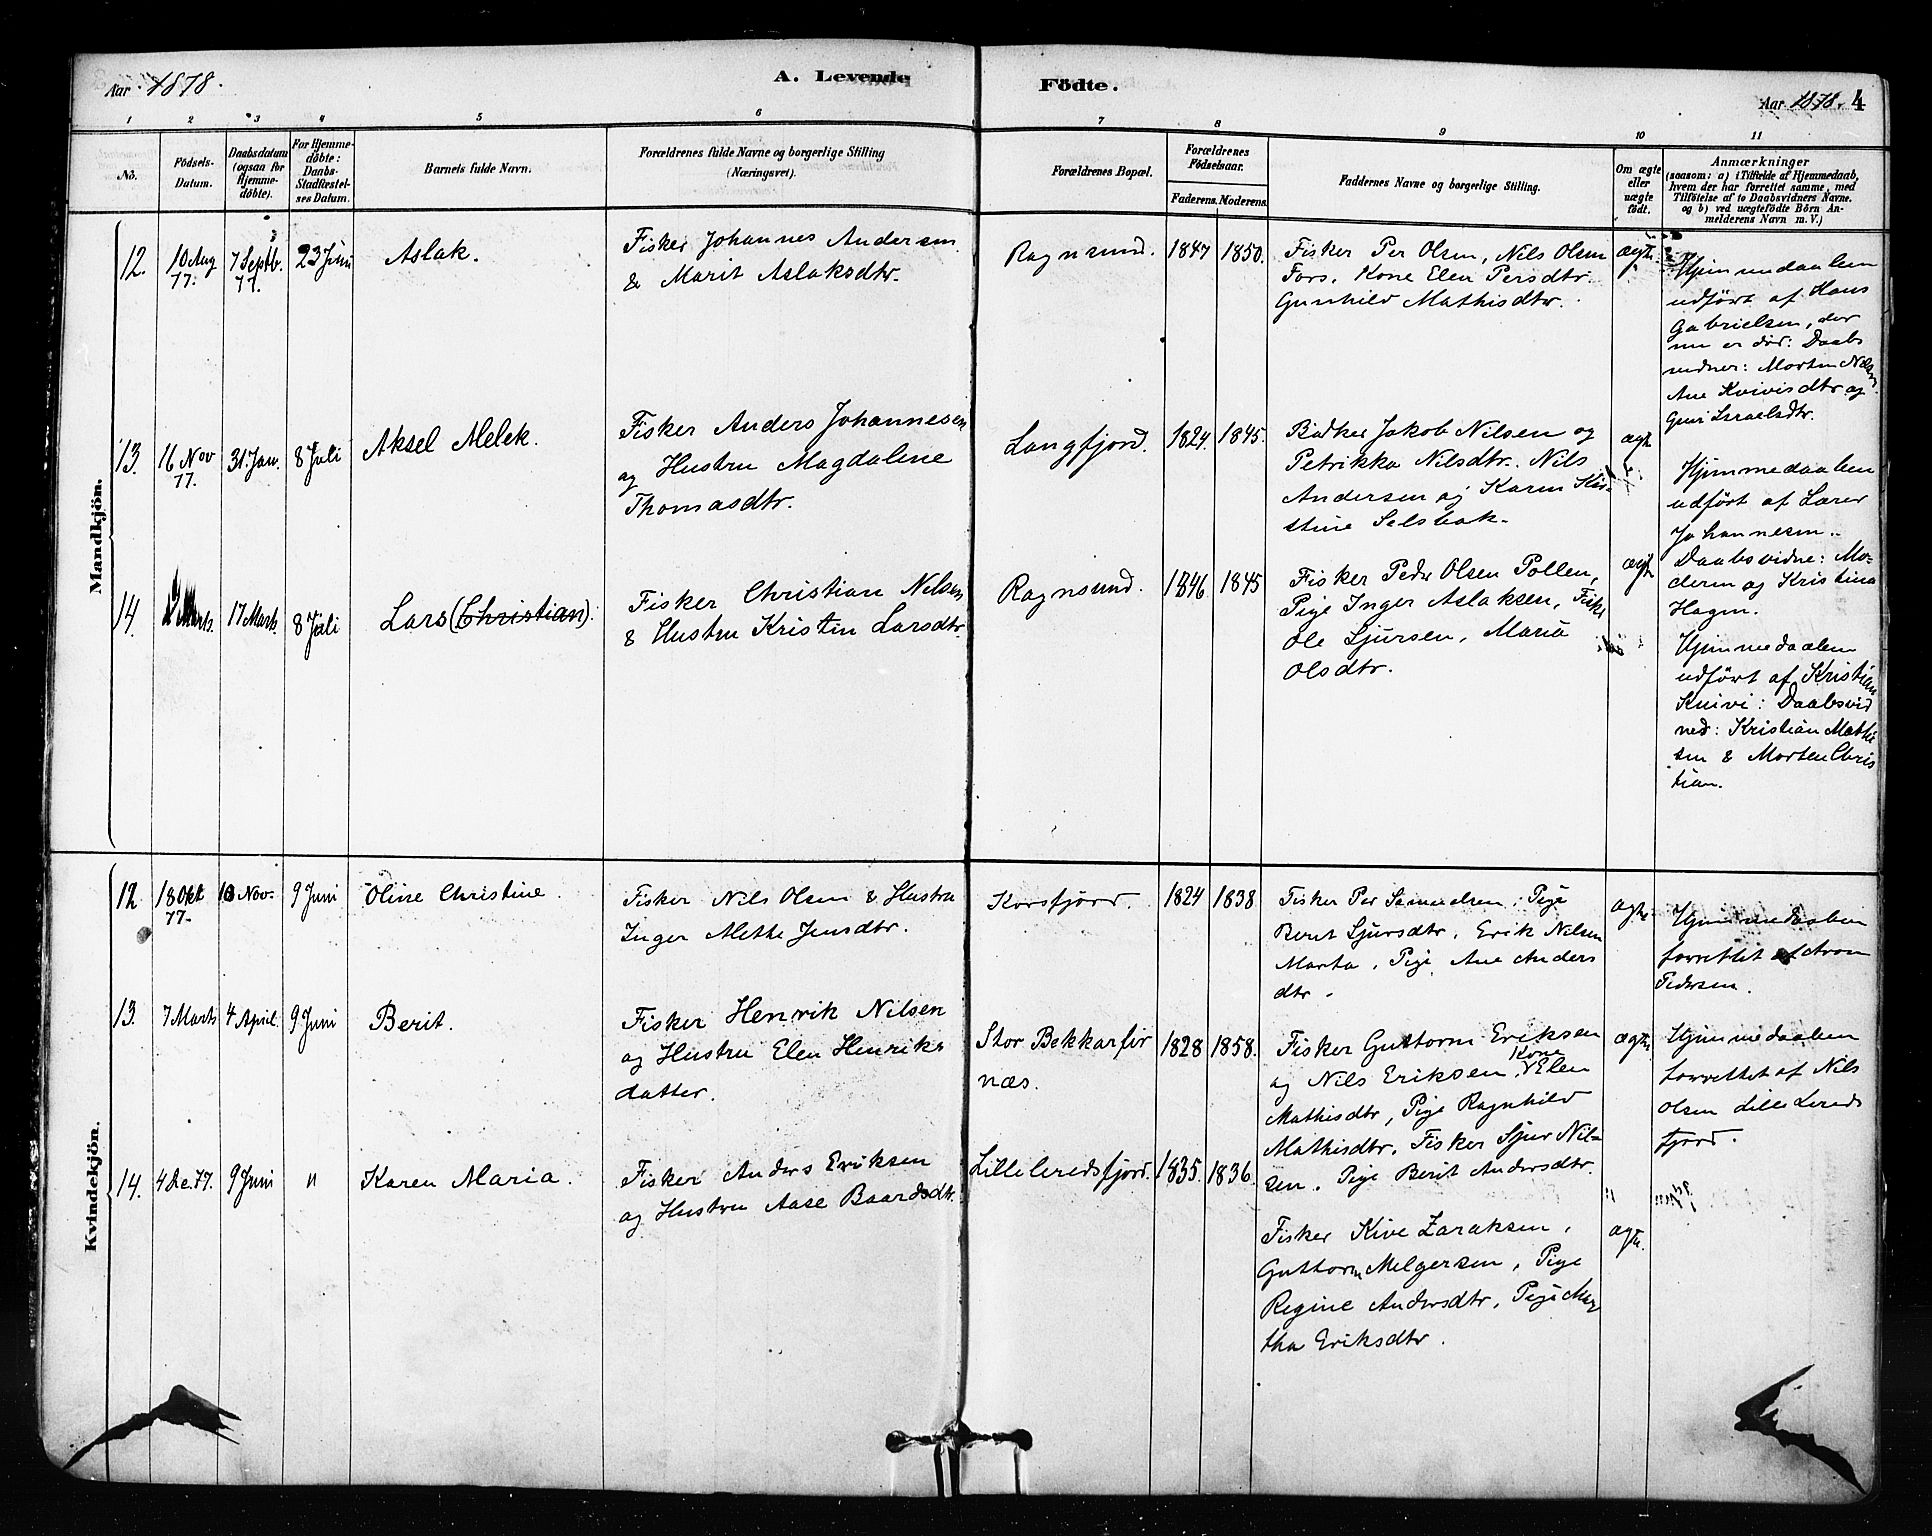 Aar 1878.
A. Levende Födte.
Aar 1878. 4
1 2 3 4 5 6 7 8 9 10 11
No.
Födsels-Datum.
Daabsdatum (ogsaa for Hjemmedöbte).
For Hjemmedöbte: Daabs-Stadfæstelses Datum.
Barnets fulde Navn.
Forældrenes fulde Navne og borgerlige Stilling (Næringsvei).
Forældrenes Bopæl.
Forældrenes Födselsaar.
Faderens. Moderens.
Faddernes Navne og borgerlige Stilling.
Om ægte eller uægte födt.
Anmærkninger
(saasom: a) i Tilfælde af Hjemmedaab,
hvem der har forrettet samme, med
Tilföielse af to Daabsvidners Navne.
og b) ved uægtefödte Börn An-
melderens Navn m. V.)
Mandkjön.
12. 10 Aug 77. 7 Septb. 77. 23 Juni Aslak.
Fisker Johannes Andersen
& Marit Aslaksdtr.
Ragnsund. 1847 1850.
Fisker Per Olsen, Nils Olsen
Fors, Kone Elen Persdtr.
Gunhild Mathisdtr.
ægte.
Hjemmedaaben
udført af Hans
Gabrielsen, der
nu er död: Daabs
vidner: Morten Nilsen
Ane Kvivisdtr og
Guri Israelsdtr.
13. 16 Nov 77. 31 Jan. 8 Juli Aksel Melek.
Fisker Anders Johannesen
og Hustru Magdalene
Thomasdtr.
Langfjord. 1824. 1845.
Bødker Jakob Nilsen og
Petrikka Nilsdtr. Nils
Andersen og Karen Kir-
stine Selsbak.
ægte
Hjemmedaaben
udført af Lærer
Johannesen.
Daabsvidne: Mo-
deren og Kristina
Hagen.
14. Marts. 17 Marts. 8 Juli Lars (Christian).
Fisker Christian Nilsen
& Hustru Kristin Larsdtr.
Ragnsund. 1846. 1845
Fisker Peder Olsen Pollen,
Pige Inger Aslaksen, Fisker
Ole Sjursen, Maria
Olsdtr.
ægte
Hjemmedaaben
udført af Kristian
Knivi: Daabsvid
ned: Kristian Mathi
sen & Morten Chris
tian.
Kvindekjön.
12. 18 Okt 77. Nov. 9 Juni Oline Christine.
Fisker Nils Olsen & Hustru
Inger Mette Jensdtr.
Korsfjord. 1824 1838.
Fisker Per Samuelsen, Pige
Berit Sjursdtr, Erik Nilsen
Marta, Pige Ane Anders
dtr.
ægte.
Hjemmedaaben
forrettet af Aron
Pedersen.
13. 7 Marts 4 April. 9 Juni Berit.
Fisker Henrik Nilsen
og Hustru Elen Henriks
datter.
Stor Bekkarfir
næs.
1828 1858.
Fisker Guttorm Eriksen
og Nils Eriksen, Kone Elen
Mathisdtr, Pige Ragnhild
Mathisdtr, Fisker Sjur Nil-
sen, Pige Berit Andersdtr.
ægte
Hjemmedaaben
forrettet af Nils
Olsen Lille Lereds
fjord.
14. 4 De. 77. 9 Juni " Karen Maria.
Fisker Anders Eriksen
og Hustru Aase Baardsdtr.
Lilleleredsfjord. 1835. 1836.
Fisker Kive Zaraksen,
Guttorm Melgersen, Pige
Regine Andersdtr, Pige Mar
tha Eriksdtr.
ægte.